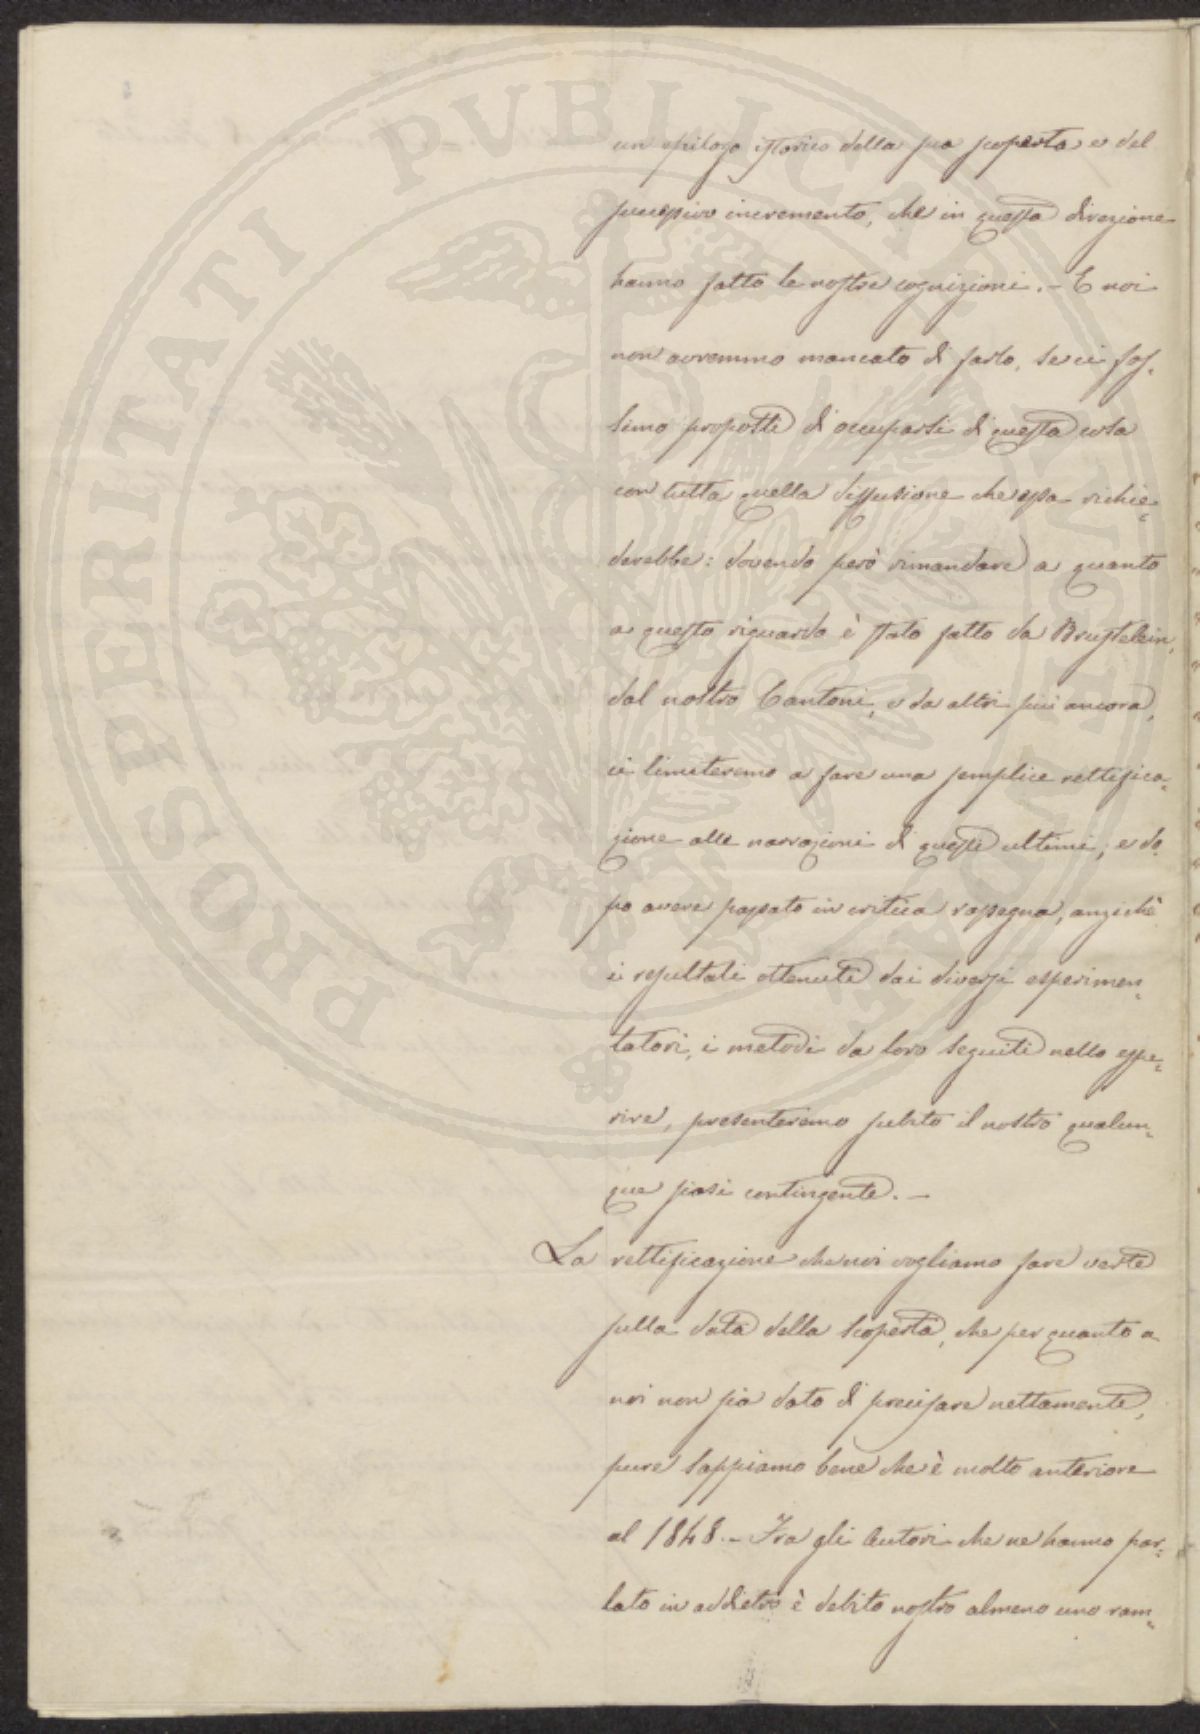 un epilogo istorico della sua scoperta e del
successivo incremento, che in questa direzione
hanno fatto le nostre cognizioni. - E noi
non avremmo mancato di farlo, se ci fos-
simo proposti di occuparsi di questa cosa
con tutta quella diffusione che essa richie-
derebbe: dovendo però rimandare a quanto
a questo riguardo è stato fatto da Brustelein,
dal nostro Cantoni, e da altri più ancora,
ci limiteremo a fare una semplice rettifica-
zione alle narrazioni di questi ultimi, e do
po avere passato in critica rassegna, anzichè
i resultati ottenuti dai diversi esperimen-
tatori, i metodi da loro seguiti nello espe-
rire, presenteremo subito il nostro qualun-
que siasi contingente. -
La rettificazione che noi vogliamo fare verte
sulla data della scoperta, che per quanto a
noi non sia dato di precisare nettamente,
pure sappiamo bene che è molto anteriore
al 1848. - Fra gli Autori che ne hanno par-
lato in addietro è debito nostro almeno uno ram-
PROSPERITATI PUBLICAE AUGENDAE